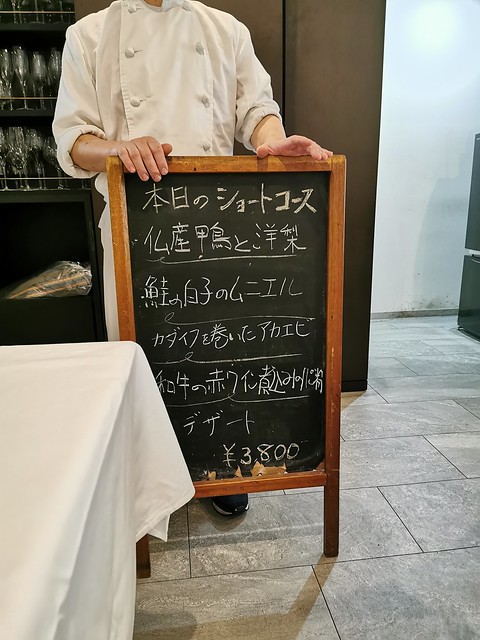 本日のショートコース
仏産鴨と洋梨
鮭の白子のムニエル
カダイフを巻いたアカエビ
和牛の赤ワイン煮込み
デザート
¥3,800